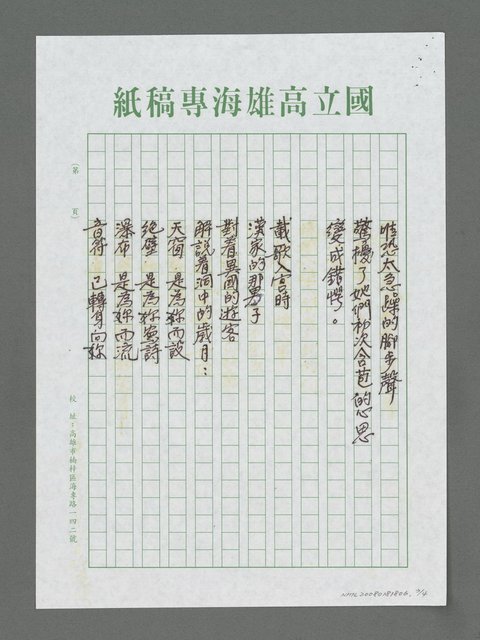 國立高雄海專稿紙
惟恐太急躁的腳步聲
驚擾了她們初次含苞的心思
變成錯愕。
載歌入宮時
漢家的那男子
對著異國的遊客
解說着洞中的歲月：
天窗 是為祢而設
絕壁 是為祢寫詩
瀑布 是為祢而流
音符 已轉身向祢
（第 頁）
校 址：高雄市楠梓區海專路一四二號
NMTL20080181806, 3/4